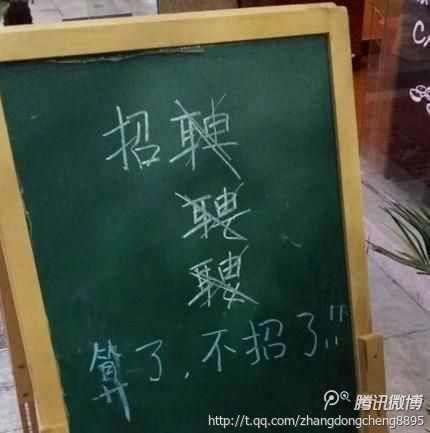 招聘
聘
聘
算了,不招了!!!
CA
腾讯微博
http://t.qq.com/zhangdongcheng8895